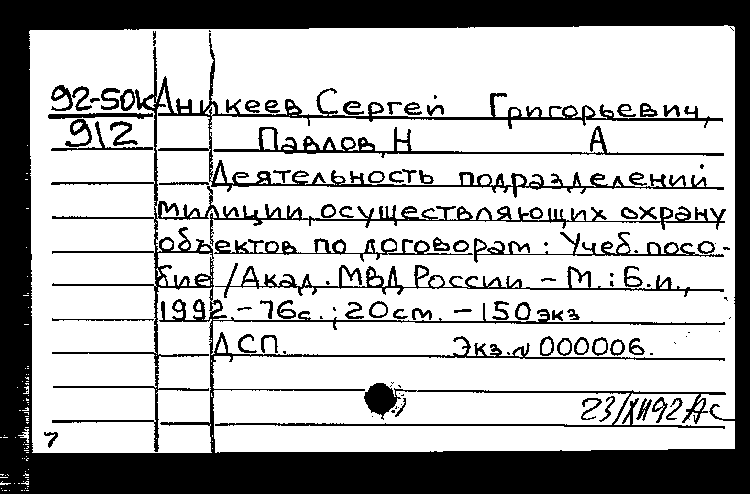 92-50к Аникеев, Сергей Григорьевич,
912 Павлов, Н А
Деятельность подразделений
милиции, осуществляющих охрану
объектов по договорам : Учеб. посо-
бие / Акад. МВД России. - М. : Б.и.,
1992. - 76с. ; 20см. - 150экз
ДСП. Экз.N 000006.
23/XII92 Ас
7